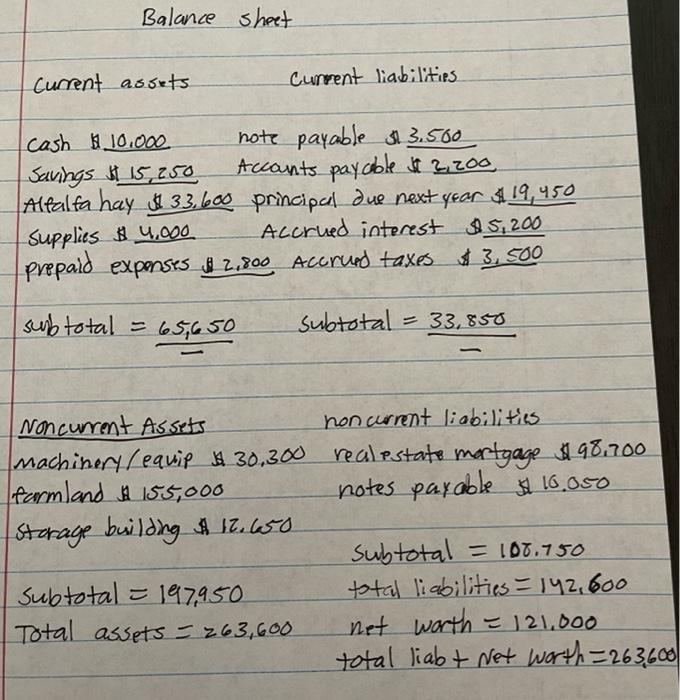 Balance sheet
Current assets Current liabilities
Cash $ 10,000 note payable $ 3,500
Savings $ 15,250 Accounts payable $ 2,200
Alfalfa hay $ 33,600 principal due next year $ 19,450
Supplies $ 4,000 Accrued interest $ 5,200
prepaid expenses $ 2,800 Accrued taxes $ 3,500
subtotal = 65,650 subtotal = 33,850
Noncurrent Assets noncurrent liabilities
Machinery/equip $ 30,300 real estate mortgage $ 98,700
farmland $ 155,000 notes payable $ 10,050
Storage building $ 12,650
Subtotal = 108,750
Subtotal = 197,950 total liabilities = 142,600
Total assets = 263,600 net worth = 121,000
total liab + Net worth = 263,600